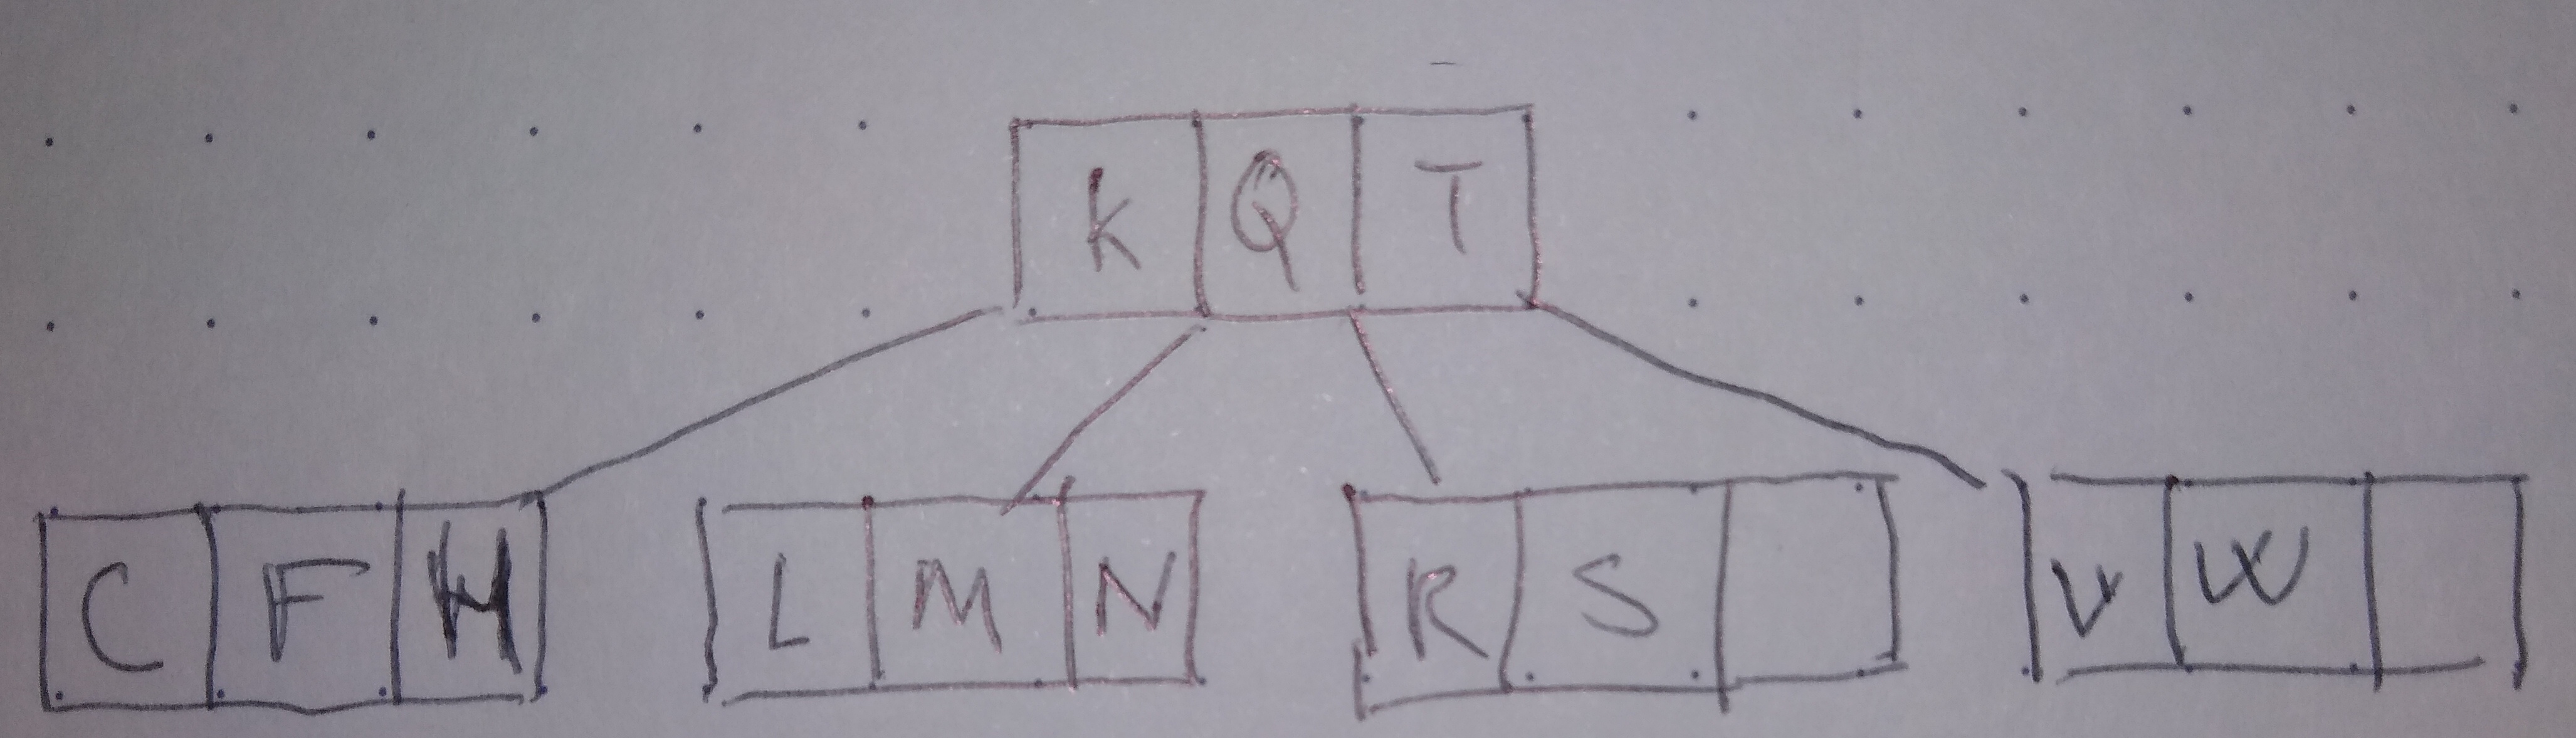 K Q T
C F H L M N R S V W